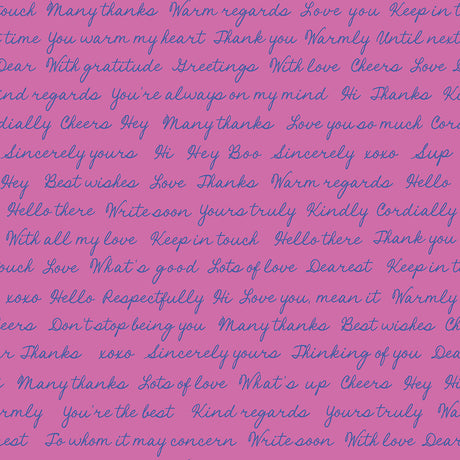 ouch Many thanks Warm regards Love you Keep in t
time You warm my heart Thank you Warmly Until next
Dear With gratitude Greetings With love Cheers Love D
ind regards You're always on my mind Hi Thanks K
dially Cheers Hey Many thanks Love you so much Cor
Sincerely yours Hi Hey Boo Sincerely xoxo Sup
Hey Best wishes Love Thanks Warm regards Hello
Hello there Write soon Yours truly Kindly Cordially
With all my love Keep in touch Hello there Thank you
ouch Love What's good Lots of love Dearest Keep in t
xoxo Hello Respectfully Hi Love you, mean it Warmly
eers Don't stop being you Many thanks Best wishes C
r Thanks xoxo Sincerely yours Thinking of you Dea
Many thanks Lots of love What's up Cheers Hey H
rmly You're the best Kind regards Yours truly Wa
rest To whom it may concern Write soon With love Dear